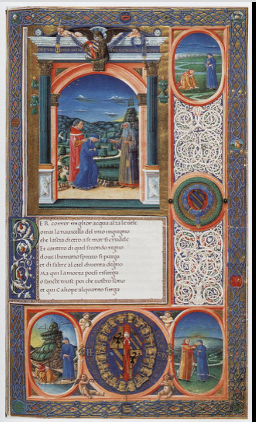 PER correr miglior acqua alza le vele
omai la navicella del mio ingegno
che lascia dietro a se mar si crudele
Et cantero di quel secondo regno
dove lhumano spirito si purga
et di salire al ciel diventa degno
Ma qui la morta poesi resurga
o sancte muse poi che vostro sono
et qui Caliope alquanto surga